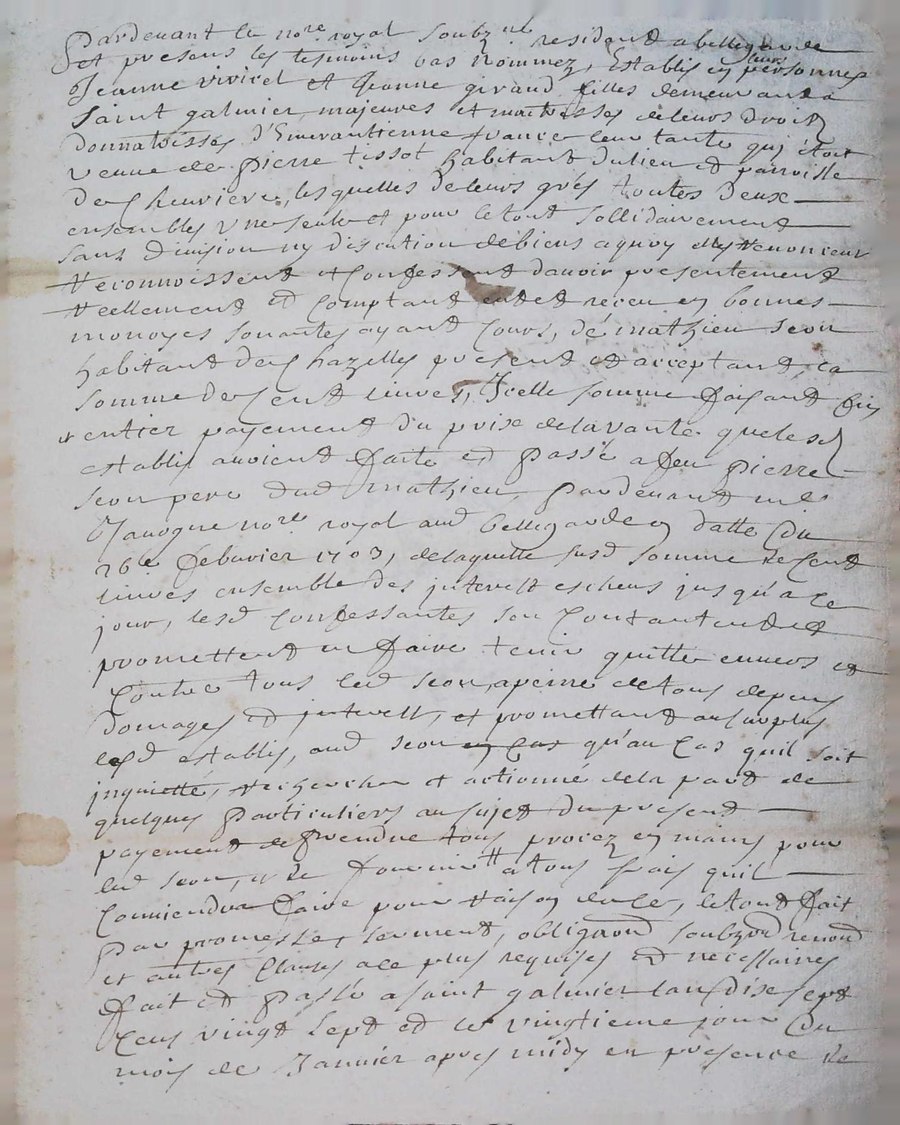 Pardevant le nore royal soubzne residant a bellegarde
et presens les tesmoins bas nommez, Establis en leurs personnes
Jeanne vivicel et Jeanne giraud filles demeurant a
saint galmier, majeures et maitresses de leurs droitz
donnatrisses d'Emerantienne france leur tante quj étoit
veuve de pierre tissot habitant du lieu et parroisse
de Chevrieres, lesquelles de leurs grés toutes deux
ensembles une seule et pour le tout sollidairement
sans division ny discution de biens a quoy elles Renoncent
Reconnoissent et Confessent d'avoir presentement
Reellement et Comptant receu en bonnes
monoyes sonantes ayant Cours, de mathieu seon
habitant des hazelles present et acceptant, la
somme de Cent livres, Jcelle somme faisant fin
et entier payement du prise de la vante que lesd
establis avoient faite et passé a feu pierre
seon pere dud mathieu, pardevant me
Janogne nore royal aud bellegarde en datte du
26e febvrier 1703, de laquelle susd somme de Cent
livres ensemble des jnterestz escheus jusqu'a Ce
jour, lesd Confessantes son Contantes et
promettent en faire tenir quitte envers et
Contre tous led seon, a peine de tous depens
domages et jnterestz, et promettant au surplus
lesd establis, aud seon qu'au Cas quil soit
jnquietté, Rechercher et actionné de la part de
quelques particuliers au sujet du present
payement de prendre tous procez en mains pour
led seon, et de fournir a tous frais quil
Conviendra faire pour Raison de Ce, le tout fait
par promesses, serment, obligaon soubzon renon
et autres Clauses a Ce plus requises et necessaires
fait et passé a saint galmier lan dise sept
Cens vingt sept et le vingtieme jour du
mois de Janvier apres midy en presence de